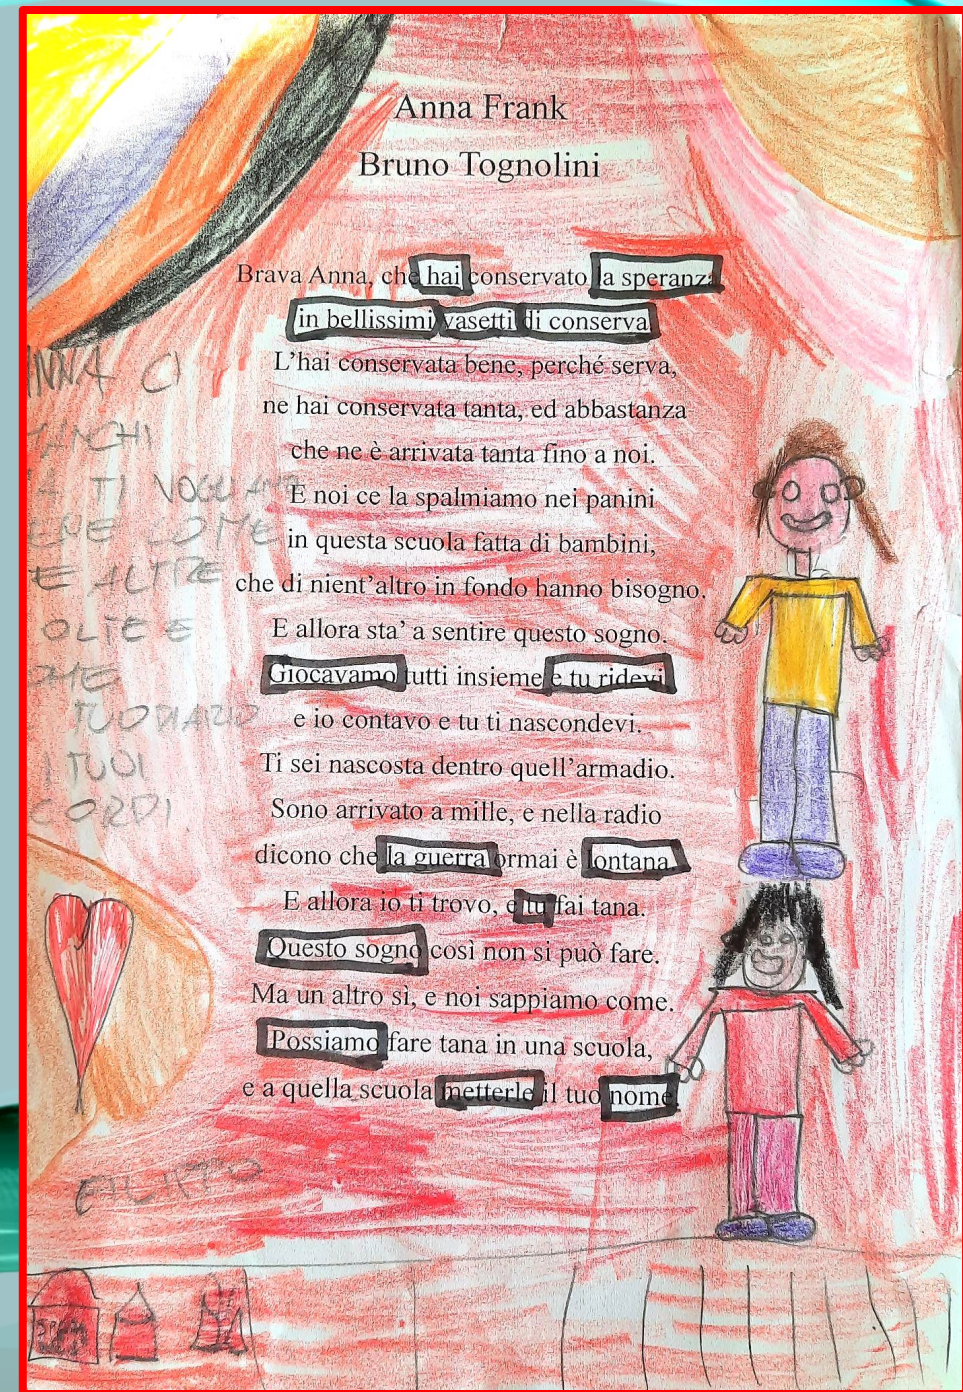 Anna Frank
Bruno Tognolini
Brava Anna, che hai conservato la speranza
in bellissimi vasetti di conserva.
L'hai conservata bene, perché serva,
ne hai conservata tanta, ed abbastanza
che ne è arrivata tanta fino a noi.
E noi ce la spalmiamo nei panini
in questa scuola fatta di bambini,
che di nient'altro in fondo hanno bisogno.
E allora sta' a sentire questo sogno.
Giocavamo tutti insieme e tu ridevi
e io contavo e tu ti nascondevi.
Ti sei nascosta dentro quell'armadio.
Sono arrivato a mille, e nella radio
dicono che la guerra ormai è lontana.
E allora io ti trovo, e tu fai tana.
Questo sogno così non si può fare.
Ma un altro sì, e noi sappiamo come.
Possiamo fare tana in una scuola,
e a quella scuola metterle il tuo nome
NNA CI
ANCHI
A TI VOGLIAMO
ENE COME
E ALTRE
OLTE E
OME
TUO DIARIO
I TUOI
CORDI
FILIPPO